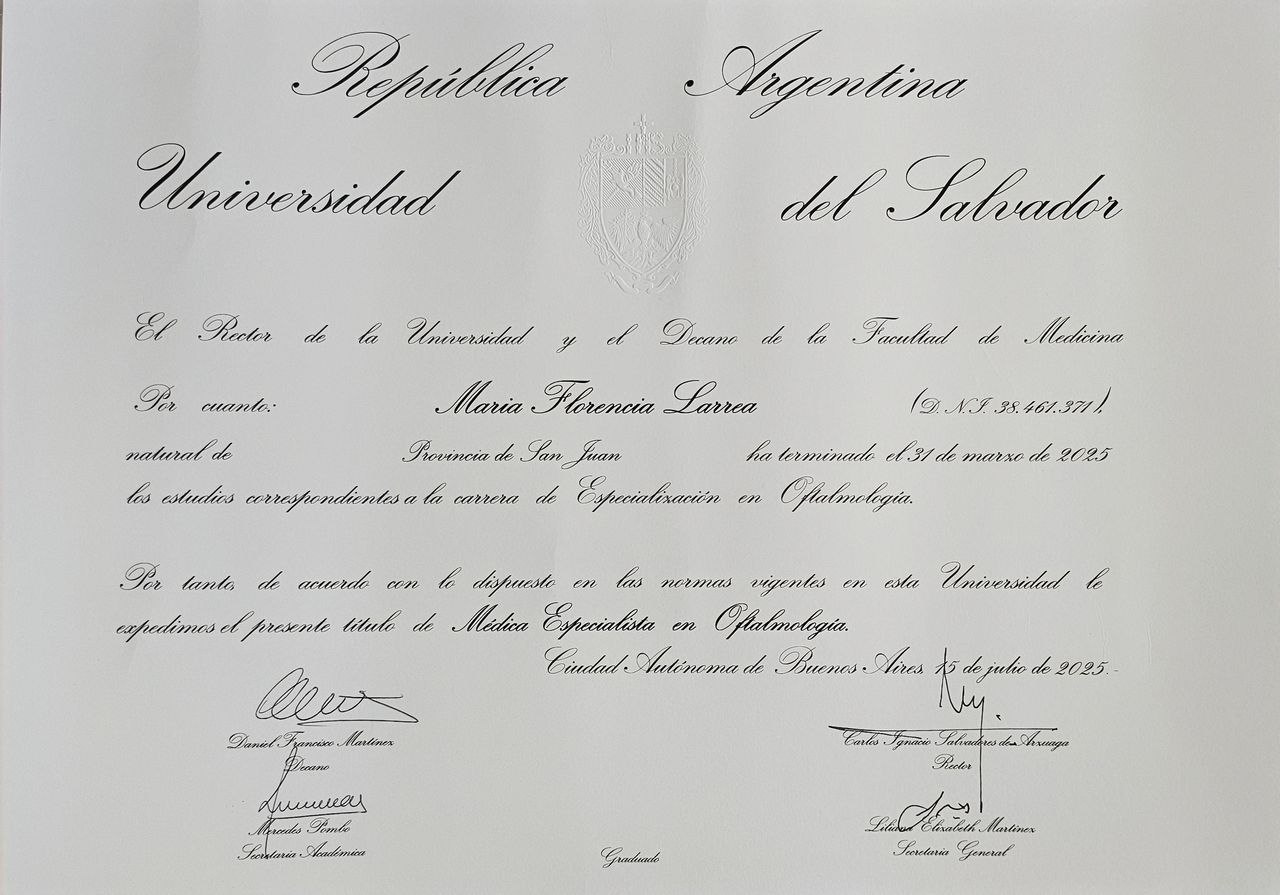 República Argentina
Universidad del Salvador
El Rector de la Universidad y el Decano de la Facultad de Medicina
Por cuanto: Maria Florencia Larrea (D.N.I. 38.461.371),
natural de Provincia de San Juan ha terminado el 31 de marzo de 2025
los estudios correspondientes a la carrera de Especialización en Oftalmología.
Por tanto, de acuerdo con lo dispuesto en las normas vigentes en esta Universidad le
expedimos el presente título de Médica Especialista en Oftalmología.
Ciudad Autónoma de Buenos Aires, 15 de julio de 2025.-
Daniel Francisco Martínez
Decano
Carlos Ignacio Salvadores de Arzuaga
Rector
Mercedes Pombo
Secretaria Académica
Liliana Elizabeth Martínez
Secretaria General
Graduado